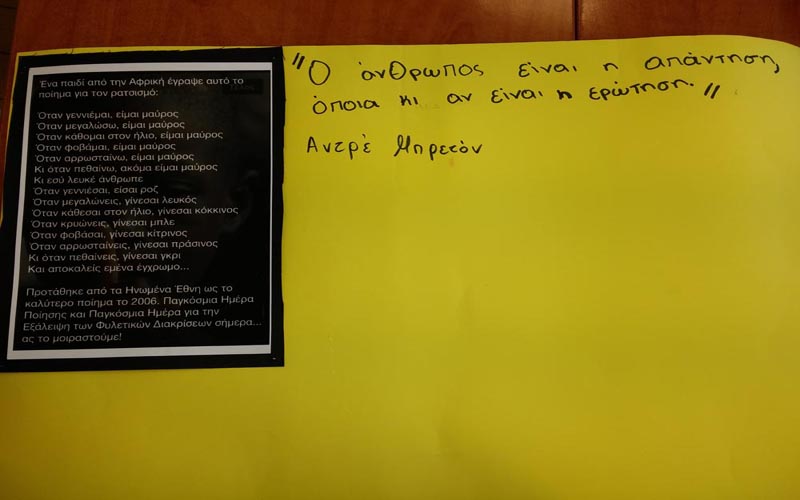 Ένα παιδί από την Αφρική έγραψε αυτό το
ποίημα για τον ρατσισμό:
Όταν γεννιέμαι, είμαι μαύρος
Όταν μεγαλώσω, είμαι μαύρος
Όταν κάθομαι στον ήλιο, είμαι μαύρος
Όταν φοβάμαι, είμαι μαύρος
Όταν αρρωσταίνω, είμαι μαύρος
Κι όταν πεθαίνω, ακόμα είμαι μαύρος
Κι εσύ λευκέ άνθρωπε
Όταν γεννιέσαι, είσαι ροζ
Όταν μεγαλώνεις, γίνεσαι λευκός
Όταν κάθεσαι στον ήλιο, γίνεσαι κόκκινος
Όταν κρυώνεις, γίνεσαι μπλε
Όταν φοβάσαι, γίνεσαι κίτρινος
Όταν αρρωσταίνεις, γίνεσαι πράσινος
Κι όταν πεθαίνεις, γίνεσαι γκρι
Και αποκαλείς εμένα έγχρωμο...
Προτάθηκε από τα Ηνωμένα Έθνη ως το
καλύτερο ποίημα το 2006. Παγκόσμια Ημέρα
Ποίησης και Παγκόσμια Ημέρα για την
Εξάλειψη των Φυλετικών Διακρίσεων σήμερα...
ας το μοιραστούμε!
"Ο άνθρωπος είναι η απάντηση,
όποια κι αν είναι η ερώτηση."
Αντρέ Μπρετόν